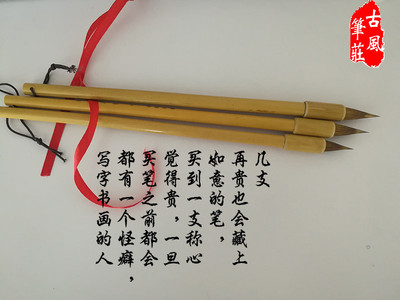 古風
筆莊
写字书画的人
都有一个怪癖，
买笔之前都会
觉得贵，一旦
买到一支称心
如意的笔，
再贵也会藏上
几支